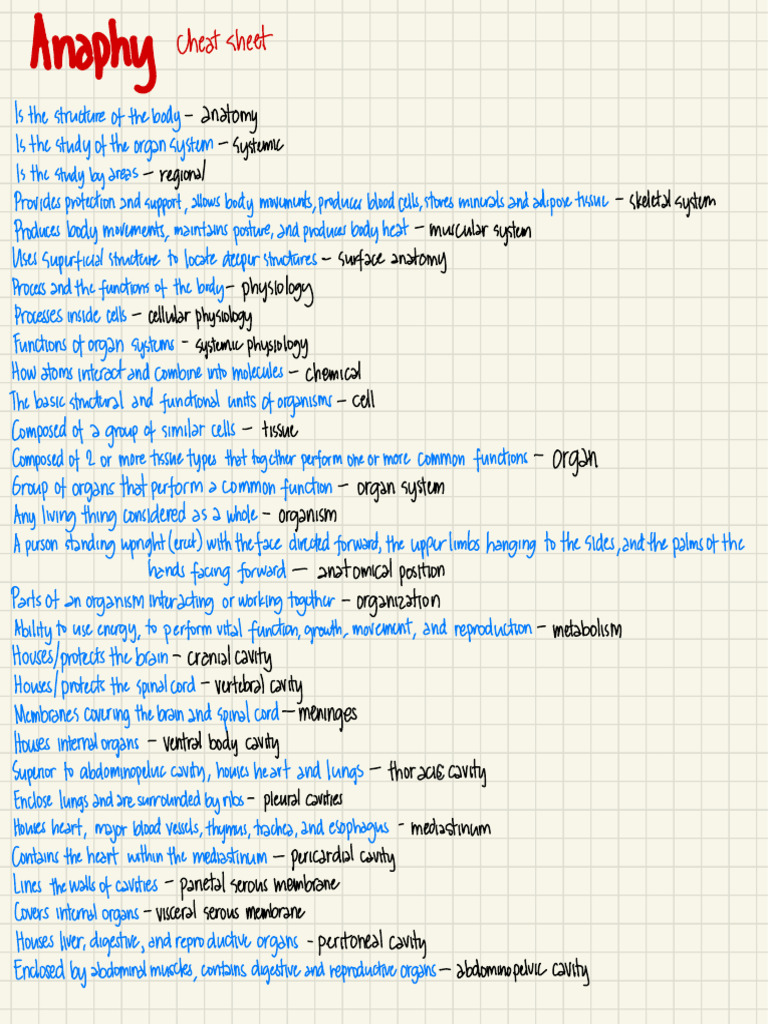 Anaphy cheat sheet
Is the structure of the body - anatomy
Is the study of the organ system - systemic
Is the study by areas - regional
Provides protection and support, allows body movements, produces blood cells, stores minerals and adipose tissue - skeletal system
Produces body movements, maintains posture, and produces body heat - muscular system
Uses superficial structure to locate deeper structures - surface anatomy
Process and the functions of the body - physiology
Processes inside cells - cellular physiology
Functions of organ systems - systemic physiology
How atoms interact and combine into molecules - chemical
The basic structural and functional units of organisms - cell
Composed of a group of similar cells - tissue
Composed of 2 or more tissue types that together perform one or more common functions - organ
Group of organs that perform a common function - organ system
Any living thing considered as a whole - organism
A person standing upright (erect) with the face directed forward, the upper limbs hanging to the sides, and the palms of the
hands facing forward - anatomical position
Parts of an organism interacting or working together - organization
Ability to use energy, to perform vital function, growth, movement, and reproduction - metabolism
Houses/protects the brain - cranial cavity
Houses/protects the spinal cord - vertebral cavity
Membranes covering the brain and spinal cord - meninges
Houses internal organs - ventral body cavity
Superior to abdominopelvic cavity, houses heart and lungs - thoracic cavity
Enclose lungs and are surrounded by ribs - pleural cavities
Houses heart, major blood vessels, thymus, trachea, and esophagus - mediastinum
Contains the heart within the mediastinum - pericardial cavity
Lines the walls of cavities - parietal serous membrane
Covers internal organs - visceral serous membrane
Houses liver, digestive, and reproductive organs - peritoneal cavity
Enclosed by abdominal muscles, contains digestive and reproductive organs - abdominopelvic cavity